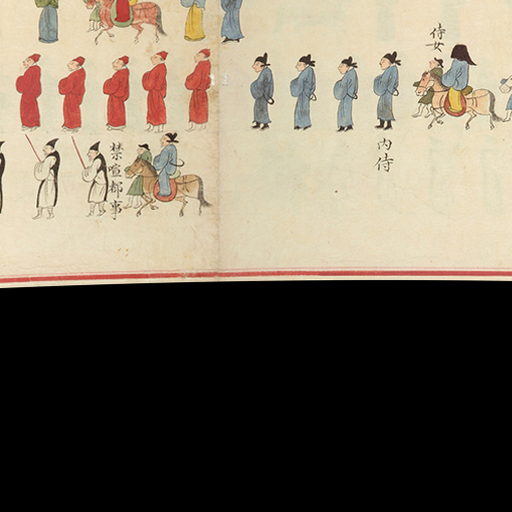 侍女
内侍
禁喧都事